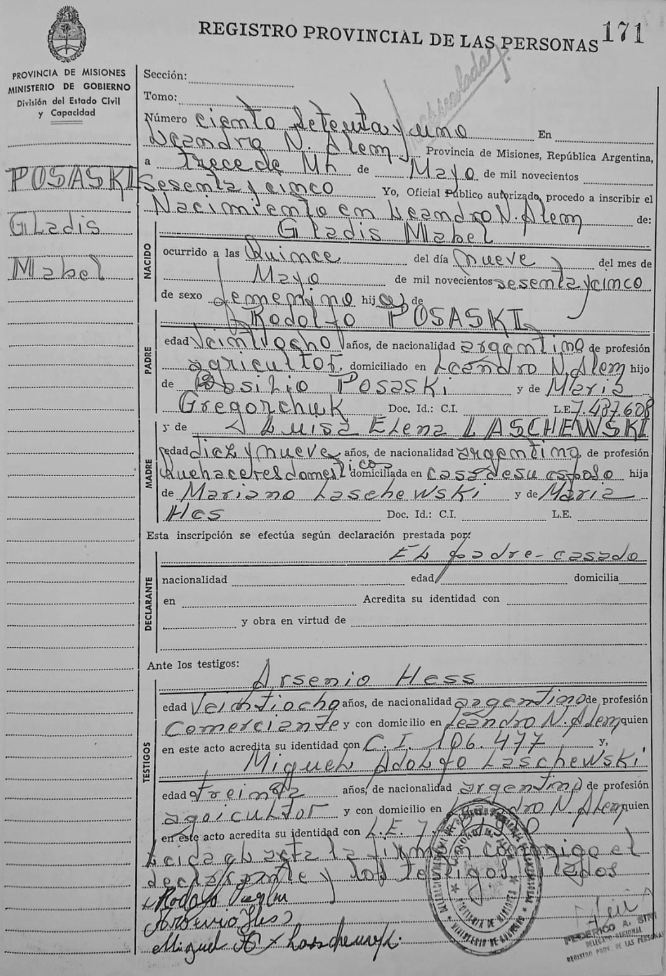 REGISTRO PROVINCIAL DE LAS PERSONAS 171
PROVINCIA DE MISIONES
MINISTERIO DE GOBIERNO
División del Estado Civil
y Capacidad
POSASKI
Gladis
Mabel
Sección:
Tomo:
Número ciento setenta y uno En
Leandro N. Alem, Provincia de Misiones, República Argentina,
a trece de de Mayo de mil novecientos
Sesenta y cinco Yo, Oficial Público autorizado, procedo a inscribir el
Nacimiento en Leandro N. Alem de:
Gladis Mabel
NACIDO
ocurrido a las Quince del día nueve del mes de
Mayo de mil novecientos sesenta y cinco
de sexo femenino hija de
Rodolfo POSASKI
PADRE
edad veintiocho años, de nacionalidad argentino de profesión
agricultor domiciliado en Leandro N. Alem hijo
de Basilio Posaski y de María
Gregorchuk Doc. Id.: C.I. L.E. 7.487.608
y de Luisa Elena LASCHEWSKI
MADRE
edad diez y nueve años, de nacionalidad argentina de profesión
Quehaceres domesticos domiciliada en casa de su esposo hija
de Mariano Laschewski y de María
Hes Doc. Id.: C.I. L.E.
Esta inscripción se efectúa según declaración prestada por:
El padre - casado
DECLARANTE
nacionalidad edad domicilia
en Acredita su identidad con
y obra en virtud de
Ante los testigos:
Arsenio Hess
TESTIGOS
edad Veintiocho años, de nacionalidad argentino de profesión
Comerciante y con domicilio en Leandro N. Alem quien
en este acto acredita su identidad con C.I. 106.477 y,
Miguel Adolfo Laschewski
edad treinta años, de nacionalidad argentino de profesión
agricultor y con domicilio en Leandro N. Alem quien
en este acto acredita su identidad con L.E. 7
Leida el acta la firman conmigo el
declarante y los testigos citados
Rodolfo
Arsenio Hess
Miguel A. Laschewski
FEDERICO A.
REGISTRO PROV. DE LAS PERSONAS